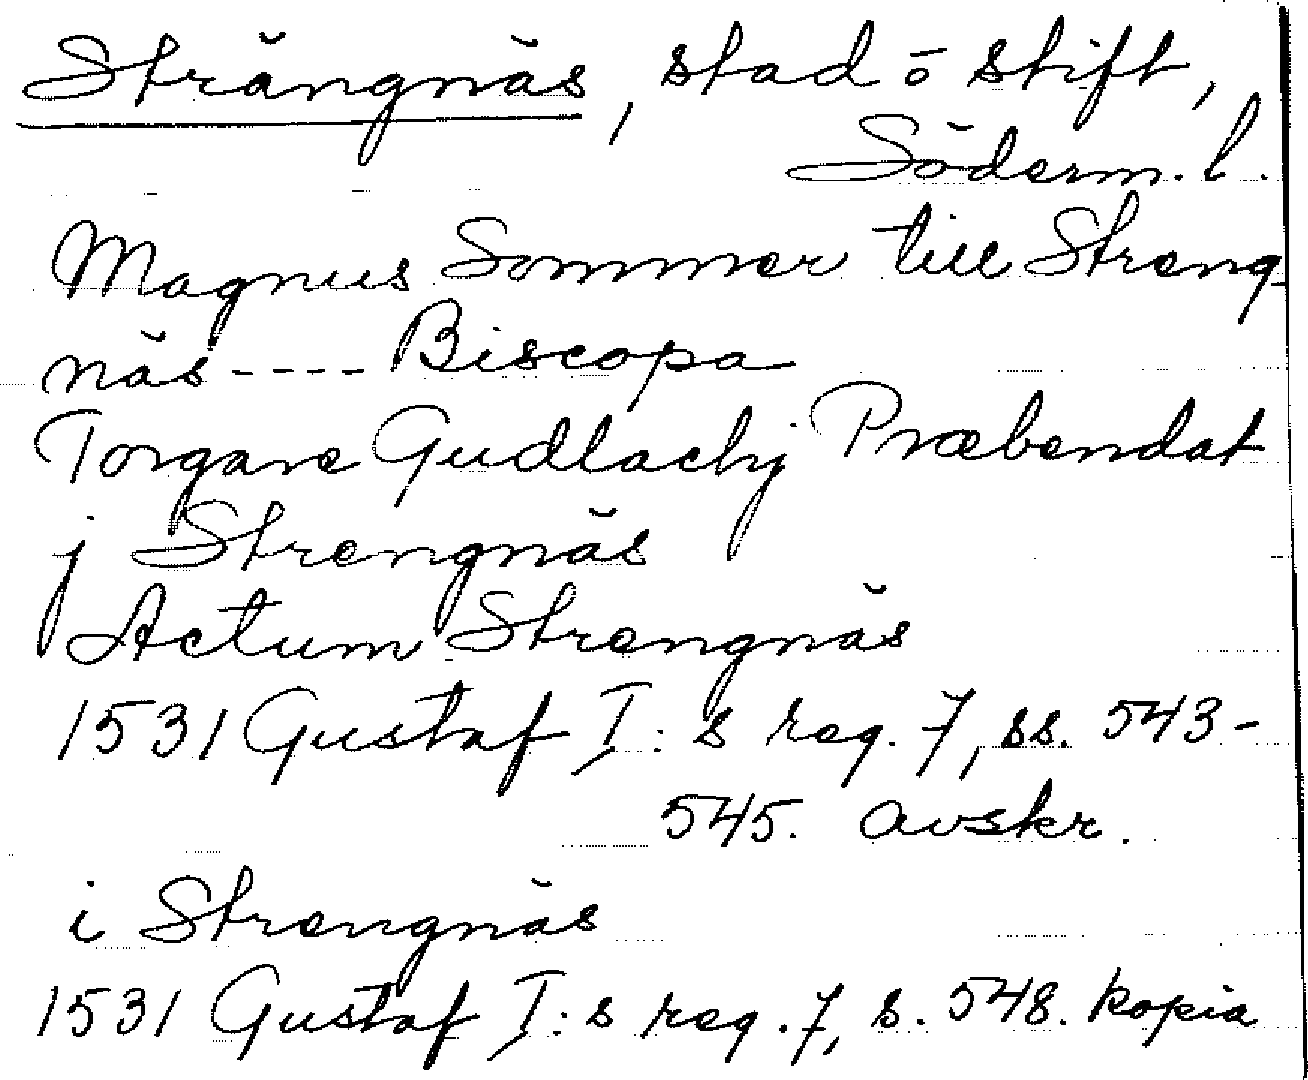 Strängnäs, stad o stift,
Söderm. l.
Magnus Sommer till Streng-
näs ---- Biscopa
Torgare Gudlachj Præbendat
j Strengnäs
Actum Strengnäs
1531 Gustaf I:s reg. 7, ss. 543-
545. avskr.
i Strengnäs
1531 Gustaf I:s reg. 7, s. 548. kopia